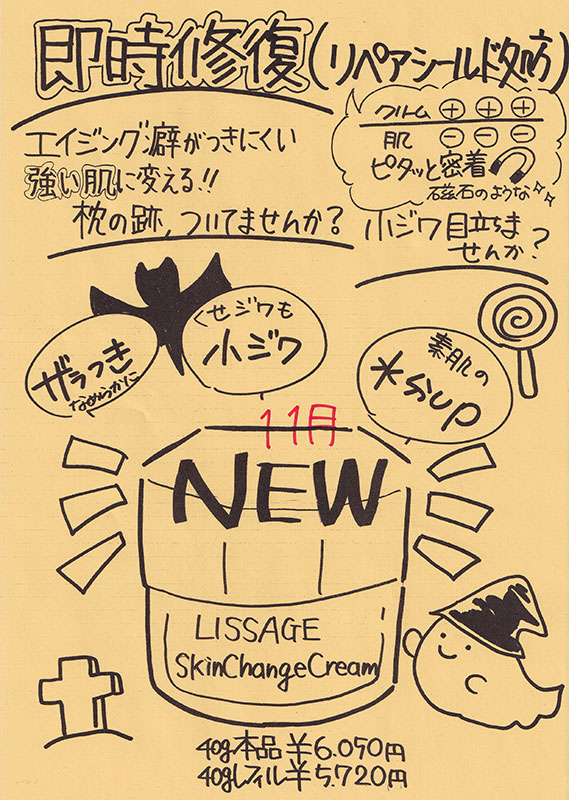 即時修復(リペアシールド処方)
エイジング癖がつきにくい
強い肌に変える!!
枕の跡、ついてませんか?
クリーム ⊕ ⊕ ⊕
肌 ⊖ ⊖ ⊖
ピタッと密着
磁石のような
小ジワ目立ちま
せんか?
ザラつき
なめらかに
くせジワも
小ジワ
素肌の
水分UP
11月
NEW
LISSAGE
SkinChangeCream
40g本品 ¥6.050円
40gレフィル ¥5.720円